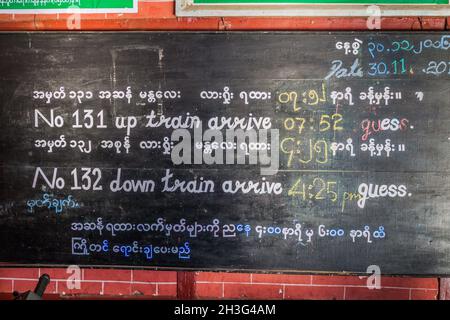 နေ့စွဲ ၃၀.၁၁.၂၀၁၆
Date 30.11.
အမှတ် ၁၃၁ အဆန် မန္တလေး လားရှိုး ရထား ၀၇:၅၂ နာရီ ခန့်မှန်း။
No 131 up train arrive 07:52 guess.
အမှတ် ၁၃၂ အစုန် လားရှိုး မန္တလေး ရထား ၄:၂၅ နာရီ ခန့်မှန်း။
No 132 down train arrive 4:25 pm guess.
မှတ်ချက်.
အဆန် ရထားလက်မှတ်များကို ညနေ ၄:၀၀နာရီ မှ ၆:၀၀ နာရီ ထိ
ကြိုတင် ရောင်းချပေးမည်